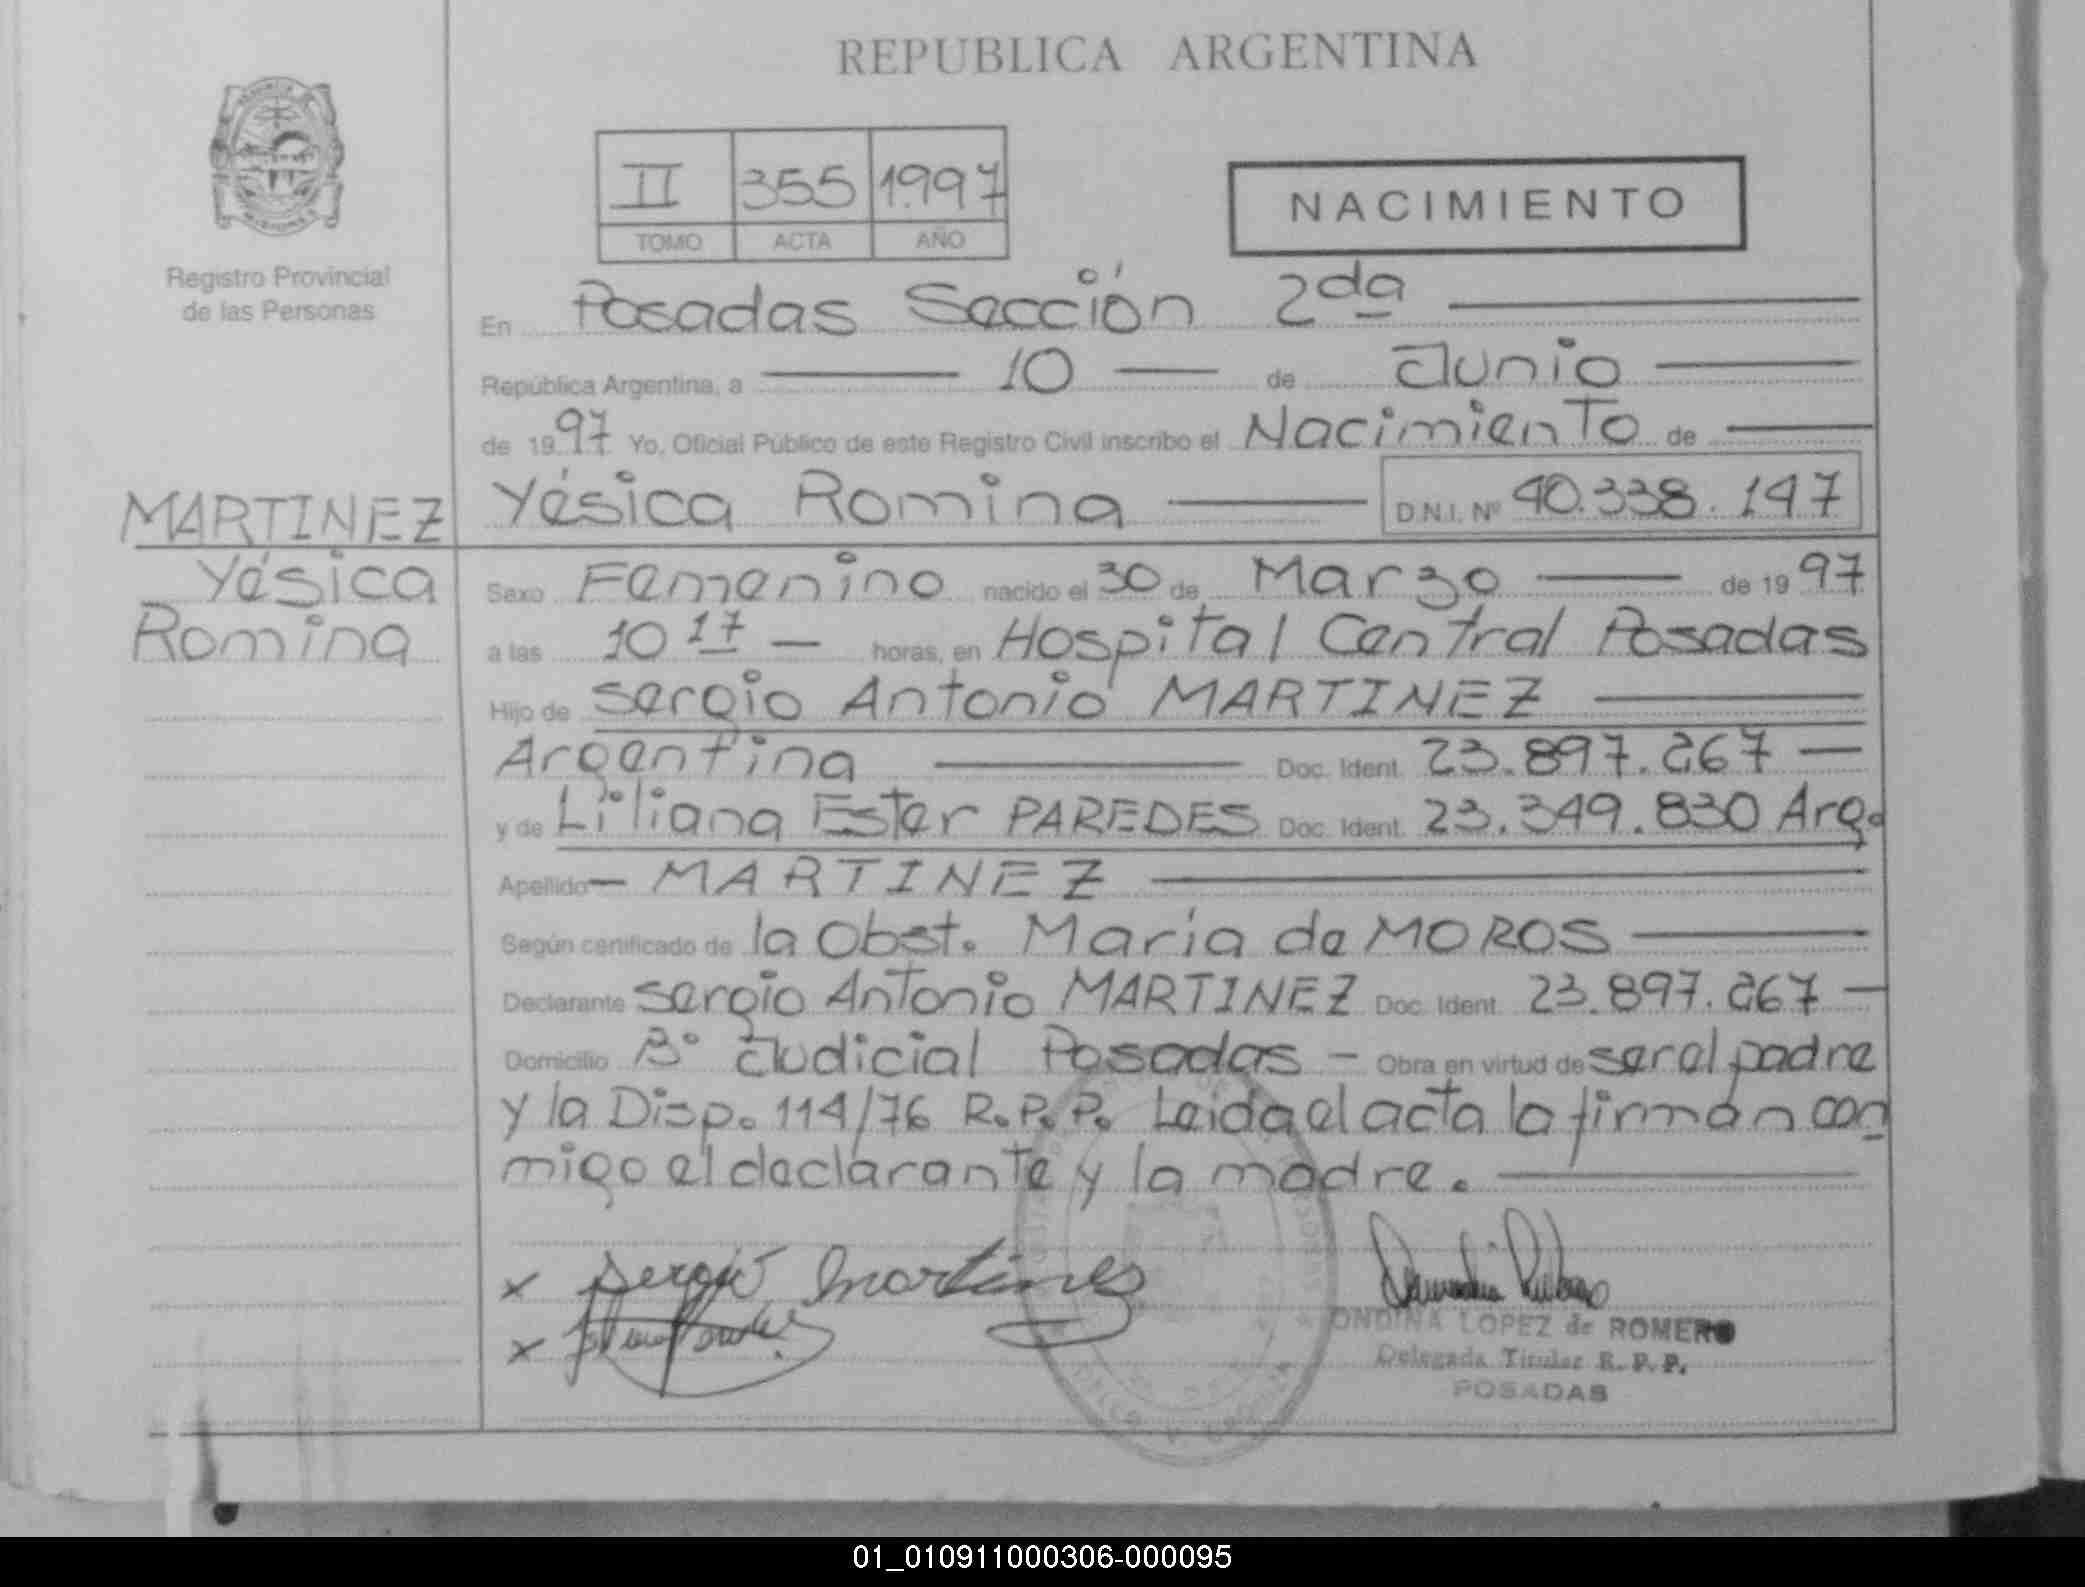 REPUBLICA ARGENTINA
II 355 1997
TOMO ACTA AÑO
NACIMIENTO
Registro Provincial
de las Personas
En Posadas Sección 2da
República Argentina, a 10 de Junio
de 1997 Yo, Oficial Público de este Registro Civil inscribo el Nacimiento de
Yésica Romina D.N.I. Nº 40.338.147
MARTINEZ
Yésica
Romina
Sexo Femenino nacido el 30 de Marzo de 1997
a las 10 17 horas, en Hospital Central Posadas
Hijo de Sergio Antonio MARTINEZ
Argentina Doc. Ident. 23.897.267
y de Liliana Ester PAREDES Doc. Ident. 23.349.830 Arg.
Apellido MARTINEZ
Según certificado de la Obst. María de MOROS
Declarante Sergio Antonio MARTINEZ Doc. Ident. 23.897.267
Domicilio Bº Judicial Posadas - Obra en virtud de ser el padre
y la Disp. 114/76 R.P.P. Leida el acta la firman con
migo el declarante y la madre.
x Sergio Martines
x
ONDINA LOPEZ de ROMERO
Delegada Titular R. P. P.
POSADAS
01_010911000306-000095